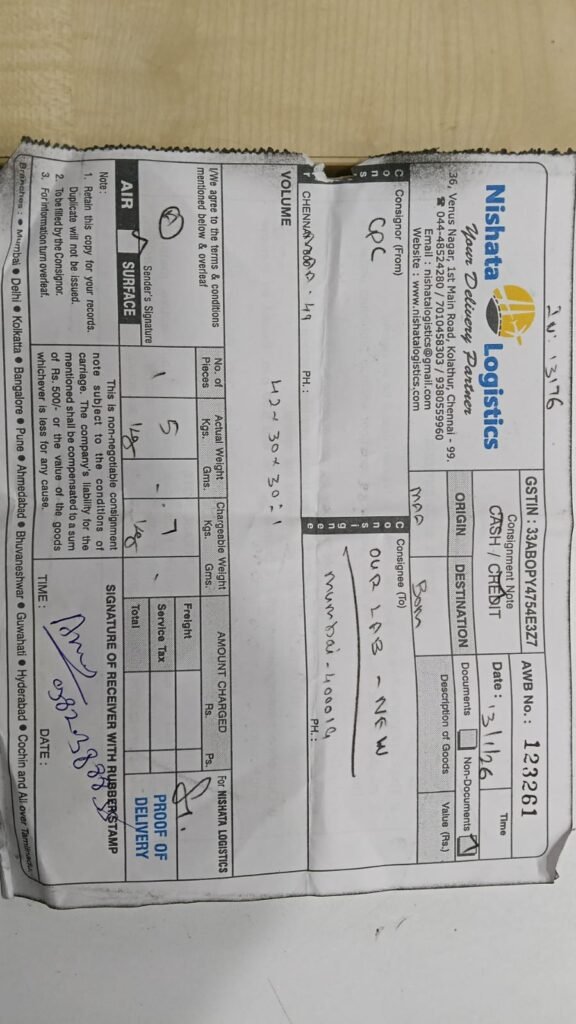 IN: 13176
Nishata Logistics
Your Delivery Partner
36, Venus Nagar, 1st Main Road, Kolathur, Chennai - 99.
☎ 044-48524280 / 7010458303 / 9380559960
Email : nishatalogistics@gmail.com
Website : www.nishatalogistics.com
GSTIN : 33ABOPY4754E3Z7
AWB No. : 123261
Consignment Note
CASH / CREDIT
Date : 13/1/26
Time
ORIGIN
DESTINATION
Documents
Non-Documents
MAA
Bom
Description of Goods
Value (Rs.)
Consignor
Consignor (From)
CPC
CHENNAI - 49
PH. :
Consignee
Consignee (To)
OUR LAB - NEW
mumbai - 400019
PH. :
VOLUME
42 × 30 × 30 : 1
I/We agree to the terms & conditions
mentioned below & overleaf
Sender's Signature
AIR
SURFACE
No. of Pieces
Actual Weight
Kgs.
Gms.
Chargeable Weight
Kgs.
Gms.
AMOUNT CHARGED
Rs.
Ps.
1
5 kg
-
7 kg
-
Freight
Service Tax
Total
For NISHATA LOGISTICS
PROOF OF
DELIVERY
Note :
1. Retain this copy for your records.
Duplicate will not be issued.
2. To be filled by the Consignor.
3. For information turn overleaf.
This is non-negotiable consignment
note subject to the conditions of
carriage. The company's liability for the
mentioned shall be compensated to a sum
of Rs. 500/- or the value of the goods
whichever is less for any cause.
SIGNATURE OF RECEIVER WITH RUBBER STAMP
TIME :
DATE :
Branches : ● Mumbai ● Delhi ● Kolkatta ● Bangalore ● Pune ● Ahmedabad ● Bhuvaneshwar ● Guwahati ● Hyderabad ● Cochin and All over Tamilnadu